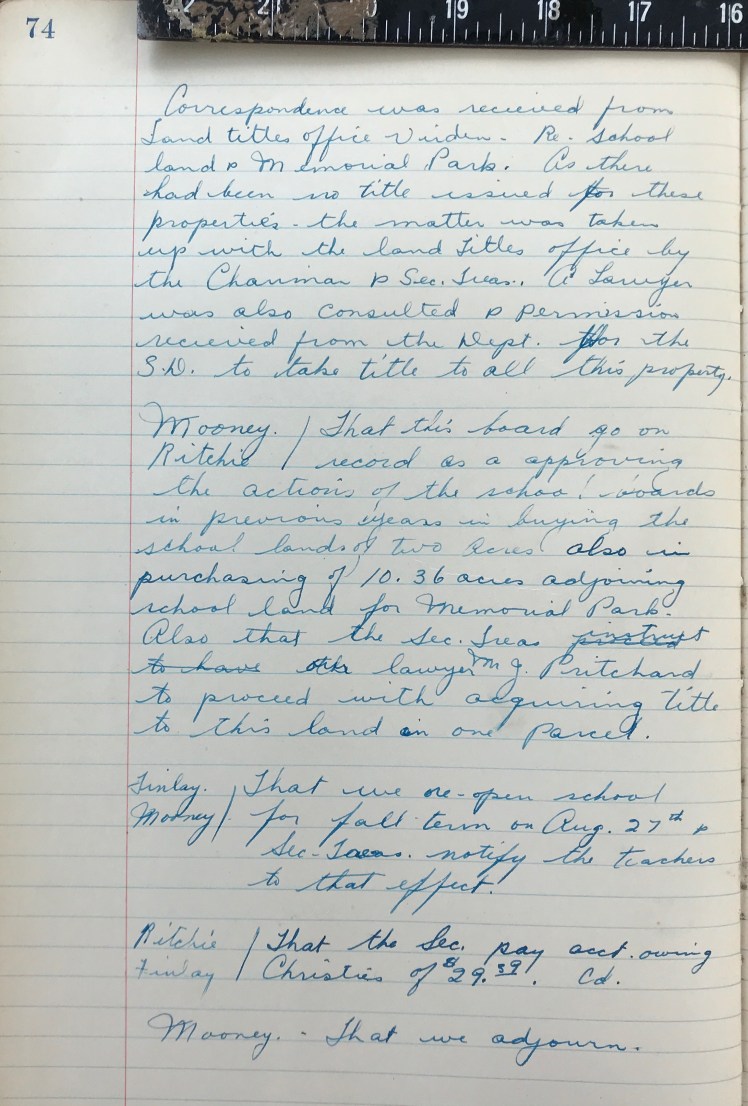 74
19 18 17 16
Correspondence was recieved from
Land titles office Virden - Re. school
land & Memorial Park. As there
had been no title issued for these
properties - the matter was taken
up with the land Titles office by
the Chairman & Sec. Treas. A Lawyer
was also consulted & permission
recieved from the Dept. for the
S.D. to take title to all this property.
Mooney. / That this board go on
Ritchie / record as a approving
the actions of the school boards
in previous years in buying the
school lands of two acres also in
purchasing of 10.36 acres adjoining
school land for Memorial Park.
Also that the Sec. Treas instruct
to have the lawyer M. J. Pritchard
to proceed with acquiring title
to this land in one parcel.
Finlay. / That we re-open school
Mooney / for fall term on Aug. 27th &
Sec-Treas. notify the teachers
to that effect.
Ritchie / That the Sec. pay acct. owing
Finlay / Christies of $29.59. Cd.
Mooney. - That we adjourn.